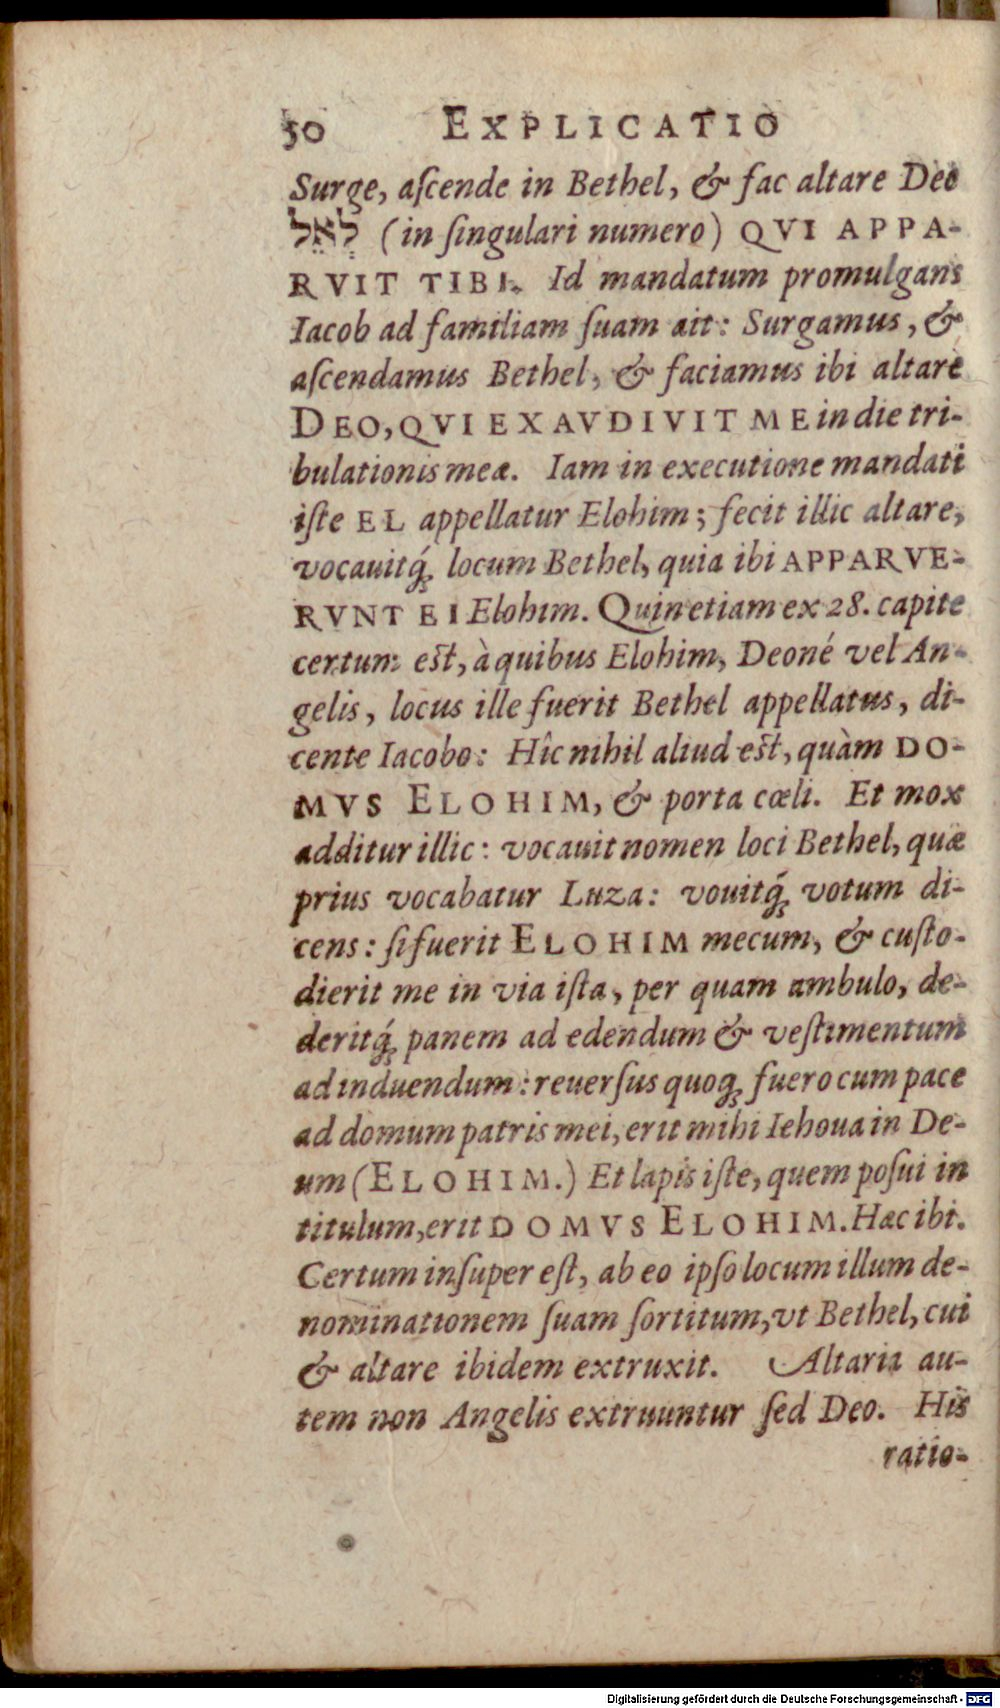 50 EXPLICATIO
Surge, aſcende in Bethel, & fac altare Deo
לְאֵל (in ſingulari numero) QVI APPA-
RVIT TIBI. Id mandatum promulgans
Iacob ad familiam ſuam ait: Surgamus, &
aſcendamus Bethel, & faciamus ibi altare
DEO, QVI EXAVDIVIT ME in die tri-
bulationis meæ. Iam in executione mandati
iſte EL appellatur Elohim; fecit illic altare,
vocauitq́ꝫ locum Bethel, quia ibi APPARVE-
RVNT EI Elohim. Quinetiam ex 28. capite
certum eſt, à quibus Elohim, Deoné vel An-
gelis, locus ille fuerit Bethel appellatus, di-
cente Iacobo: Hîc nihil aliud eſt, quàm DO-
MVS ELOHIM, & porta cœli. Et mox
additur illic: vocauit nomen loci Bethel, quæ
prius vocabatur Luza: vouitq́ꝫ votum di-
cens: ſi fuerit ELOHIM mecum, & cuſto-
dierit me in via iſta, per quam ambulo, de-
deritq́ꝫ panem ad edendum & veſtimentum
ad induendum: reuerſus quoqꝫ fuero cum pace
ad domum patris mei, erit mihi Iehoua in De-
um (ELOHIM.) Et lapis iſte, quem poſui in
titulum, erit DOMVS ELOHIM. Hæc ibi.
Certum inſuper eſt, ab eo ipſo locum illum de-
nominationem ſuam ſortitum, vt Bethel, cui
& altare ibidem extruxit. Altaria au-
tem non Angelis extruuntur ſed Deo. His
ratio-
Digitalisierung gefördert durch die Deutsche Forschungsgemeinschaft - DFG